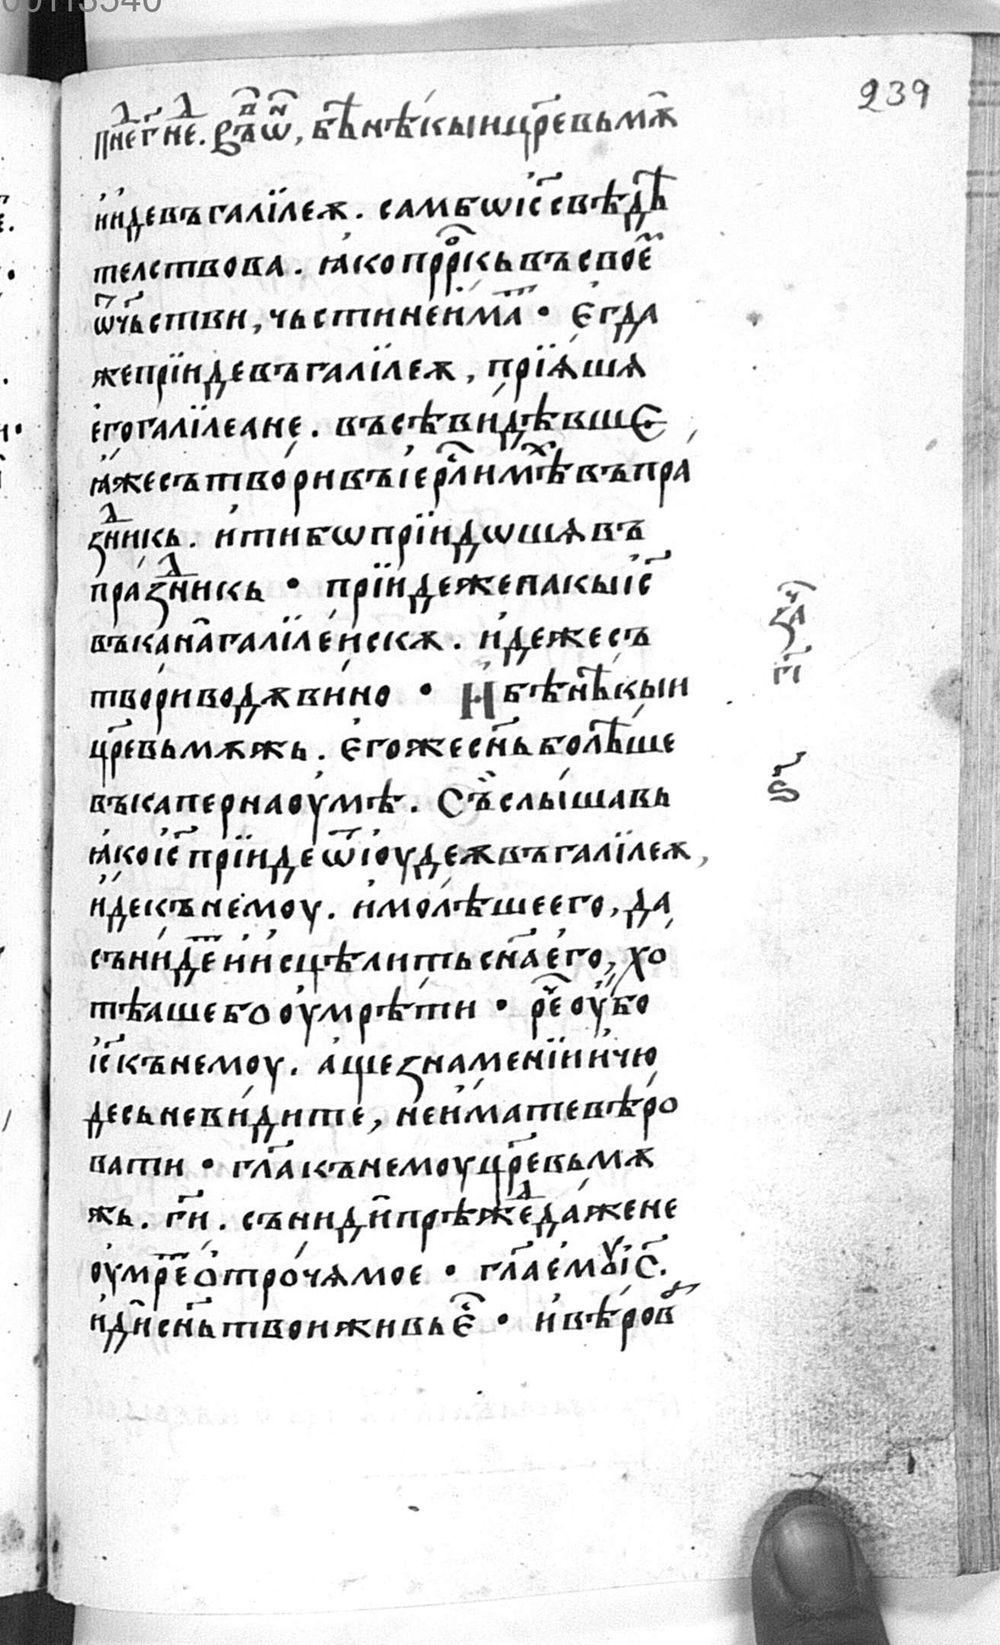 00113540
239
пнеⷣ г҃ неⷣ. въⷡ҇ ѡⷩ҇, бѣ҃ нѣ́кыи цр҃евь мѫ҃
и҆и҆де въ галїлеѫ. самь бѡ і҆с҃ свѣдѣ҃
телствова. ꙗ҆ко прⷪ҇ркь въ своеⷨ҇
ѿчьстви, чьсти не и҆маⷮ҇ • Є҆гда
же прїиде въ галїлеѫ, прїѧшѧ
е҆го галїлеане. въсѣ ви́дѣвше
ꙗ҆же сътво́ри въ і҆ерⷭ҇лимѣⷯ въ пра
зⷣникь. и҆ ти бѡ прїидѡшѧ въ
празⷣникь • прїиде же пакы і҆с҃
въ кана҃ галїле́искѫ. и҆деже съ
тво́ри водѫ ви́но • И҆ бѣ нѣ҃кыи
цр҃евь мѫжь. є҆гоже сн҃ь болѣ҃ше
въ капернаоу́мѣ. Съ҆ слы́шавь
ꙗ҆ко і҆с҃ прїиде ѿ і҆оудеѫ въ галїлеѫ,
и҆де къ немоу. и҆ молѣ́ше его, да
съни́деⷮ и҆ и҆сцѣлить сн҃а е҆го, хо
тѣаше бо оу҆мрѣ́ти • реⷱ҇ оу҆бо
і҆с҃ къ немоу. а҆ще зна́менїи и҆ чю
десь не ви́дите, не и҆мате вѣ́ро
вати • гл҃а къ немоу цр҃евь мѫ
жь. гн҃и. съниди҃ прѣжеⷣ да́же не
оу҆мреⷮ о҆тро́чѧ мое • гл҃а е҆мꙋ і҆с҃.
и҆ди҃ сн҃ь твои живь єⷭ҇ • и҆ вѣ́ров
заⷱ҇
г҃і
ѕ҃